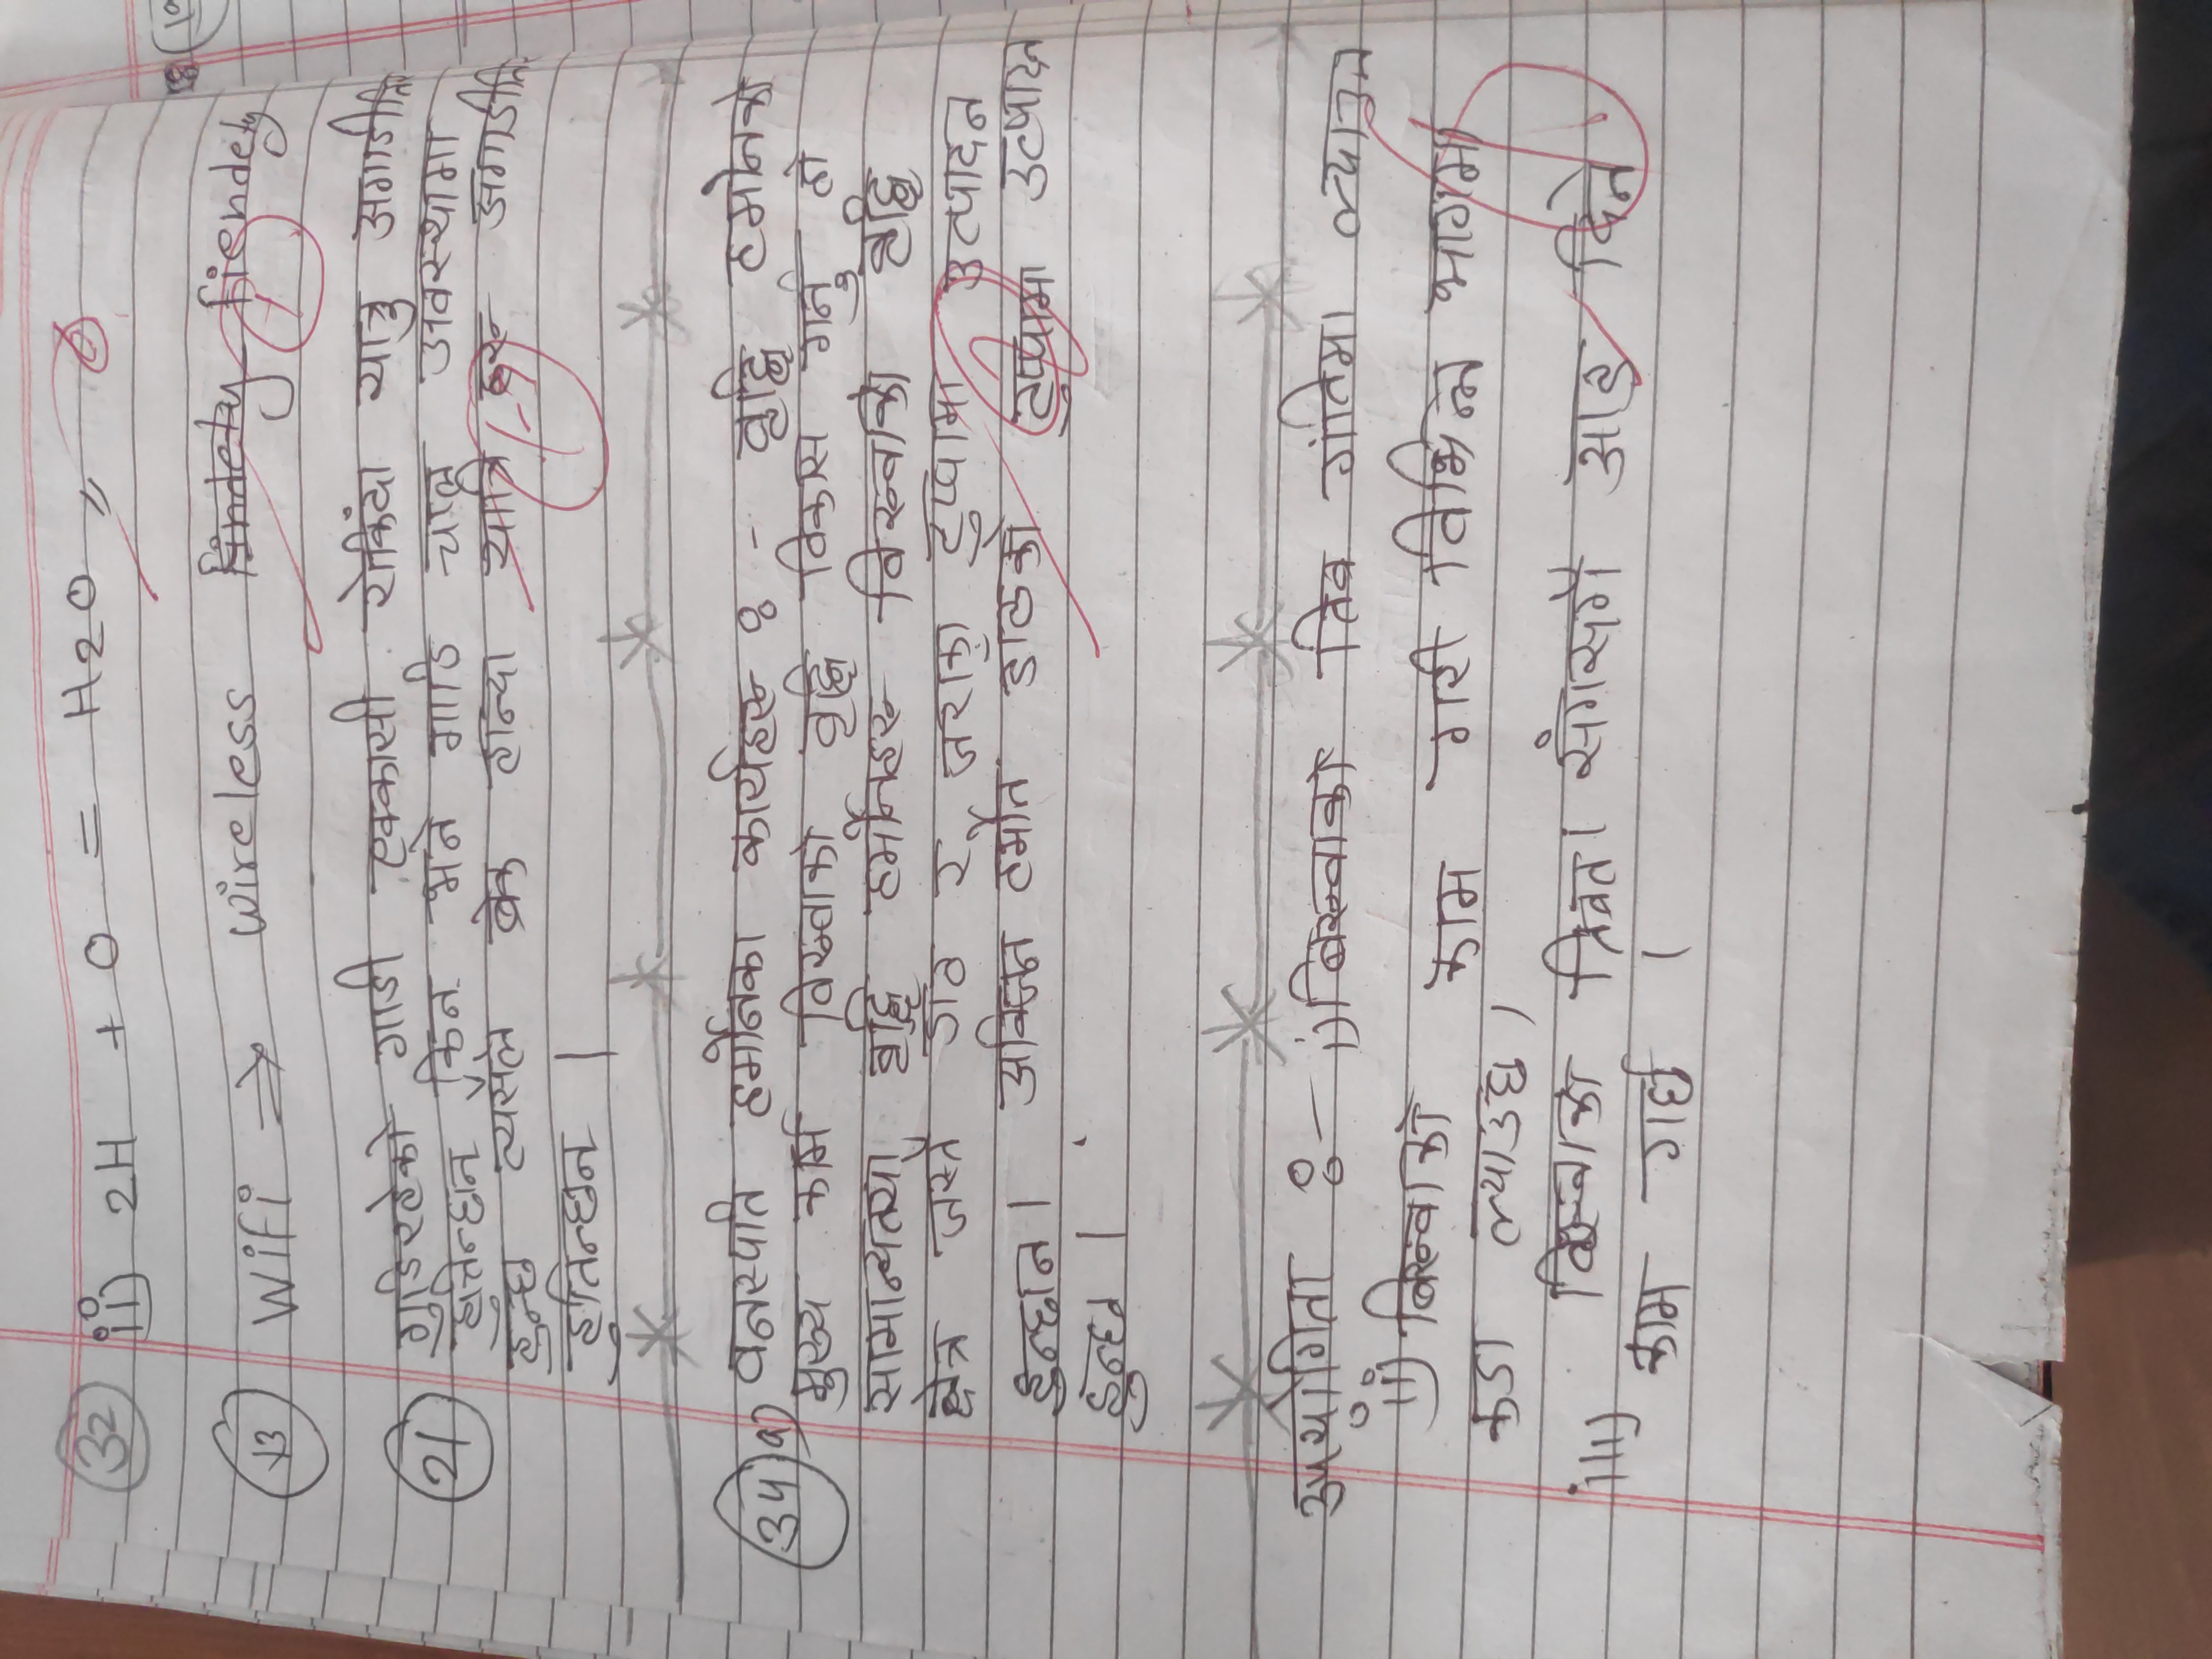 32 ii) 2H + O = H2O
13 WiFi ⇒ wireless findety fiendety
21 गुडिरहेको गाडी एक्कासी रोकिंदा यात्रु अगाडीतिर
हुत्तिन्छन किन भने गाडि चाल अवस्थामा
हुन्छ त्यसैले ब्रेक हान्दा यात्रि हरु अगाडीतिर
हुतिन्छन ।
34 a) वनस्पति हर्मोनका कार्यहरु :- वृद्धि हर्मोनको
मुख्य कार्म विरुवाको वृद्धि विकास गर्नु हो
सामान्यतया वृद्धि हर्मोनहरु विरुवाको वृद्धि
क्षेत्र जस्तै डाँठ र जराका टुप्पामा उत्पादन
हुन्छन । अक्जिन हर्मोन डाँठको टुप्पामा उत्पादन
हुन्छ ।
उपयोगिता :- i) बिरुवाको तिव्र गतिमा ल्याउन
ii) बिरुवाको काम गरी विभिन्न भागमा
कडा ल्याउछ ।
iii) विरुवाको तिव्रता संगसगै आड दिने
काम गर्छ ।